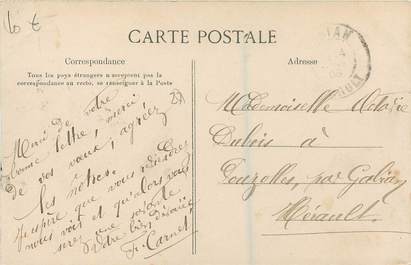 10 €
CARTE POSTALE
Correspondance
Tous les pays étrangers n'acceptent pas la
correspondance au recto, se renseigner à la Poste
Adresse
HÉRAULT
Merci de votre
bonne lettre, merci
de vos vœux, agréez
les nôtres.
J'espère que vous viendrez
nous voir et qu'alors vous
serez une
Votre bien dévouée
F. Carnet
Mademoiselle
Dubois à
Pouzolles, par Gabian
Hérault